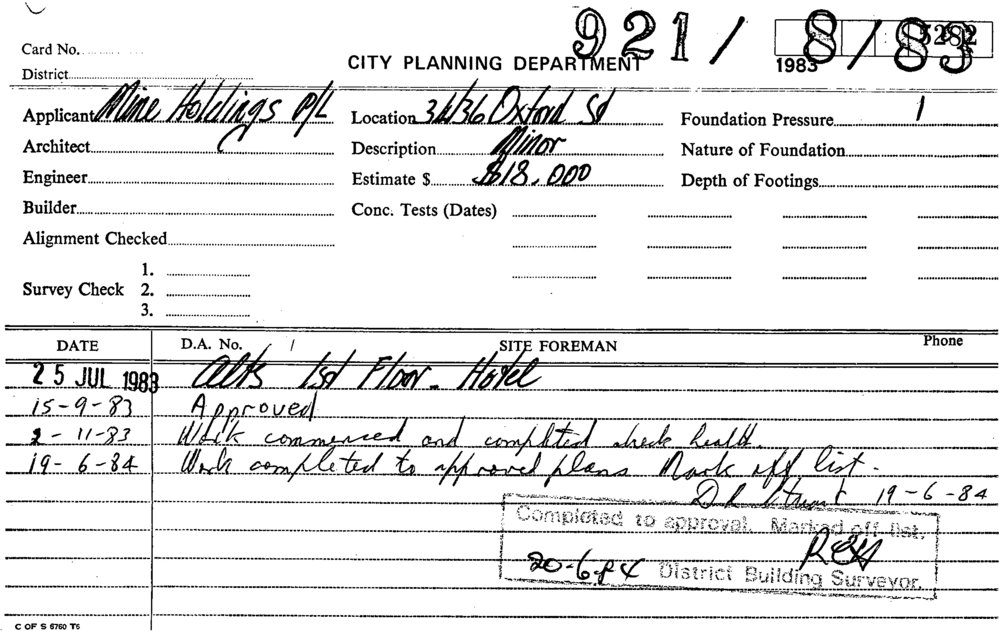 921/8/83
5282
1983
Card No.
CITY PLANNING DEPARTMENT
District
Applicant Mine Holdings P/L Location 34/36 Oxford St Foundation Pressure
Architect Description Minor Nature of Foundation
Engineer Estimate $ $18,000 Depth of Footings
Builder Conc. Tests (Dates)
Alignment Checked
1.
Survey Check 2.
3.
DATE D.A. No. SITE FOREMAN Phone
25 JUL 1983 Alts 1st Floor - Hotel
15-9-83 Approved
2-11-83 Work commenced and completed check health.
19-6-84 Work completed to approved plans Mark off list.
19-6-84
Completed to approval. Marked off list.
20-6-84 District Building Surveyor.
C OF S 6760 T5